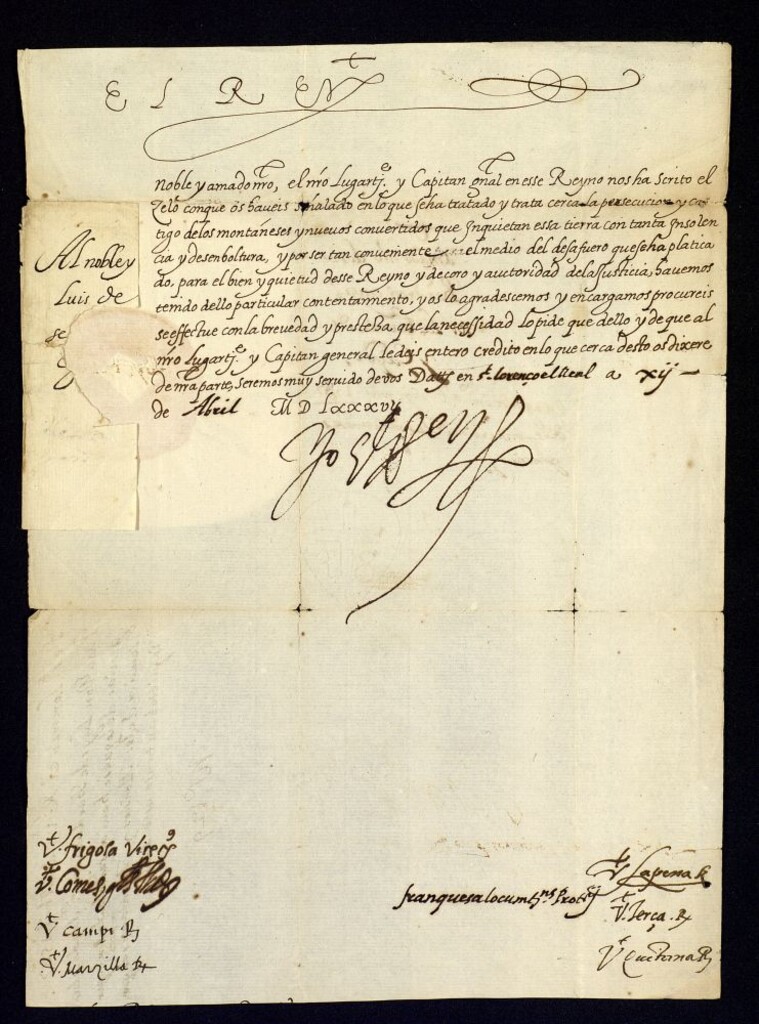 EL REY
Noble y amado nro, el nro Lugarte. y Capitan gnal en esse Reyno nos ha scrito el
zelo con que os haveis señalado en lo que se ha tratado y trata cerca la persecucion y cas
tigo de los montañeses y nuevos convertidos que Inquietan essa tierra con tanta Insolen
cia y desenboltura, y por ser tan conveniente el medio del desafuero que se ha platica
do, para el bien y quietud desse Reyno, y decoro y auctoridad de la Justicia, havemos
tenido dello particular contentamiento, y os lo agradescemos y encargamos procureis
se effectue con la brevedad y presteza, que la necessidad lo pide que dello y de que al
nro Lugarte. y Capitan general le deis entero credito en lo que cerca desto os dixere
de nra parte, seremos muy servido de vos Datt en St. Lorenço el Real a xij
de Abril M D lxxxvij
Yo el Rey
Al noble y
Luis de
V. frigola Vicecs
V. Comes, g
V. campi R
V. Marzilla R
V. Lapena R
franquesa locumtns Prot
V. Terça R
V. Quintana R